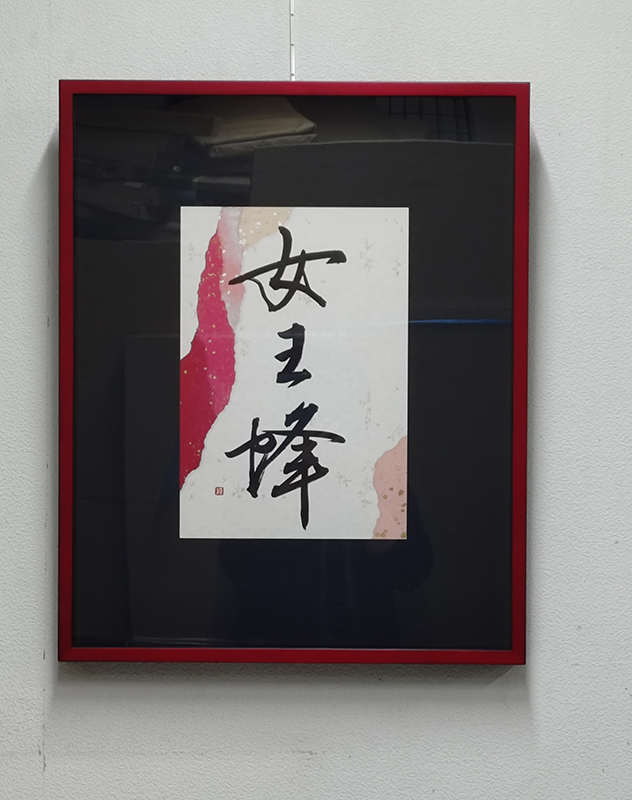 女王蜂